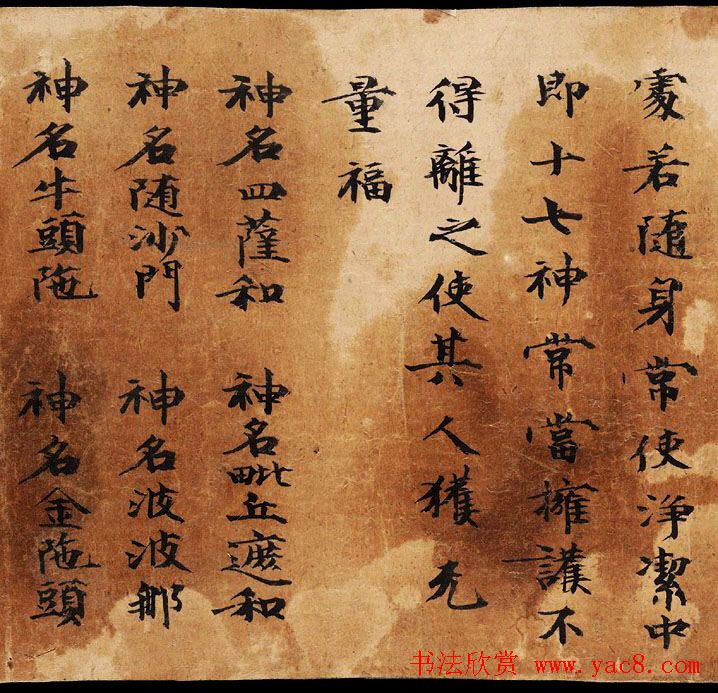 處若隨身常使淨潔中
即十七神常當擁護不
得離之使其人獲无
量福
神名四薩和 神名毗丘遮和
神名随沙門 神名波波那
神名牛頭陁 神名金陁頭
书法欣赏 www.yac8.com